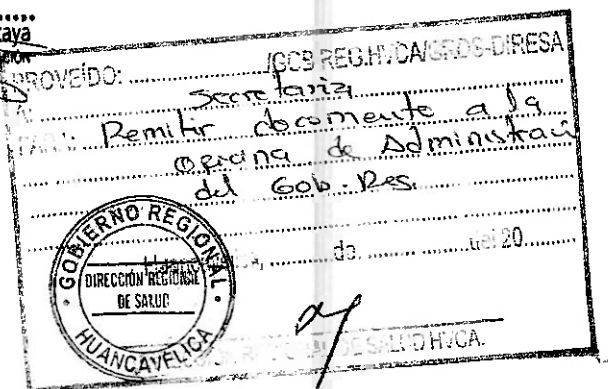 caya
PROVEÍDO: ............ /GOB.REG.HVCA/GRDS-DIRESA
A: Secretaria
PARA: Remitir documento a la
oficina de Administració
del Gob. Reg.
Huancavelica, ............ de ............ del 20........
GOBIERNO REGIONAL
DIRECCIÓN REGIONAL
DE SALUD
HUANCAVELICA
REGIONAL DE SALUD HVCA.